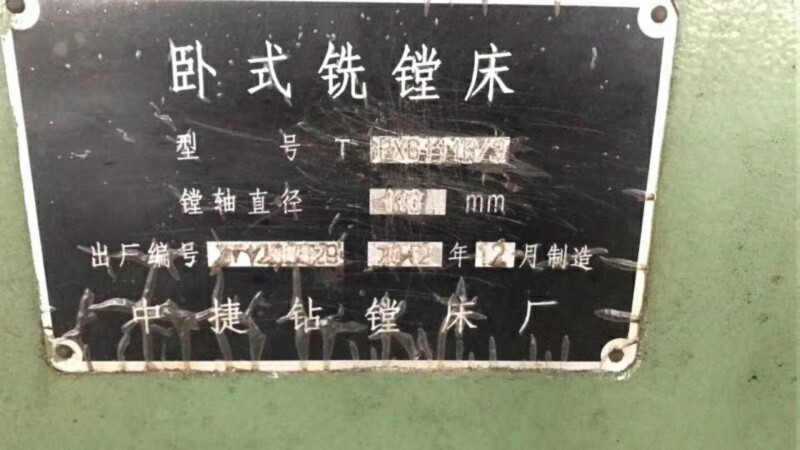 卧式铣镗床
型 号 T
镗轴直径 mm
出厂编号 年 12 月制造
中捷钻镗床厂